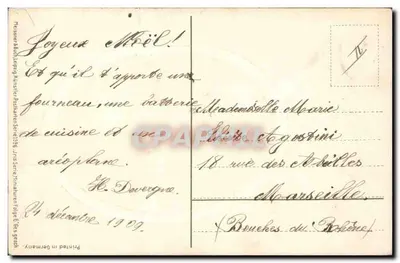 Joyeux Noël!
Et qu'il t'apporte un
fourneau, une batterie
de cuisine et un
aréoplane.
H. Davergne.
24 décembre 1909.
Mademoiselle Marie
Agostini
18 rue des Abeilles
Marseille.
(Bouches du Rhône)
Printed in Germany